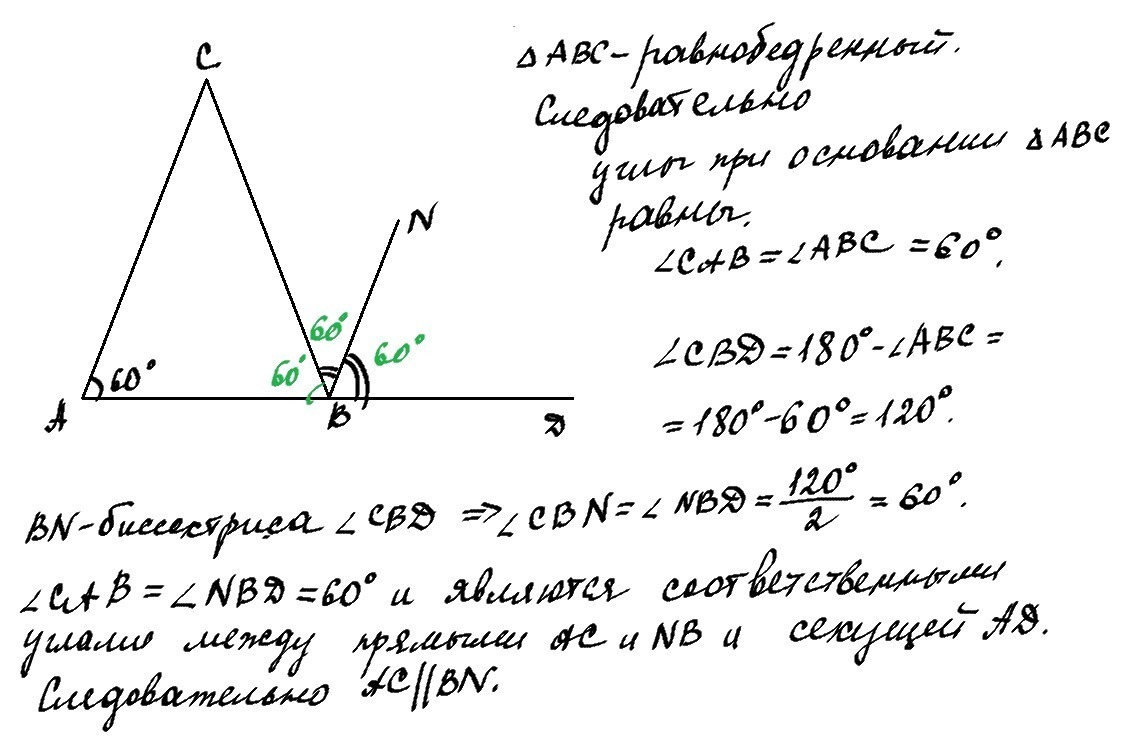 C
△ABC – равнобедренный.
Следовательно
углы при основании △ABC
равны.
N
∠CAB = ∠ABC = 60°.
60°
60°
60°
60°
A
B
D
∠CBD = 180° - ∠ABC =
= 180° - 60° = 120°.
BN - биссектриса ∠CBD ⇒ ∠CBN = ∠NBD = 120°/2 = 60°.
∠CAB = ∠NBD = 60° и являются соответственными
углами между прямыми AC и NB и секущей AD.
Следовательно AC||BN.